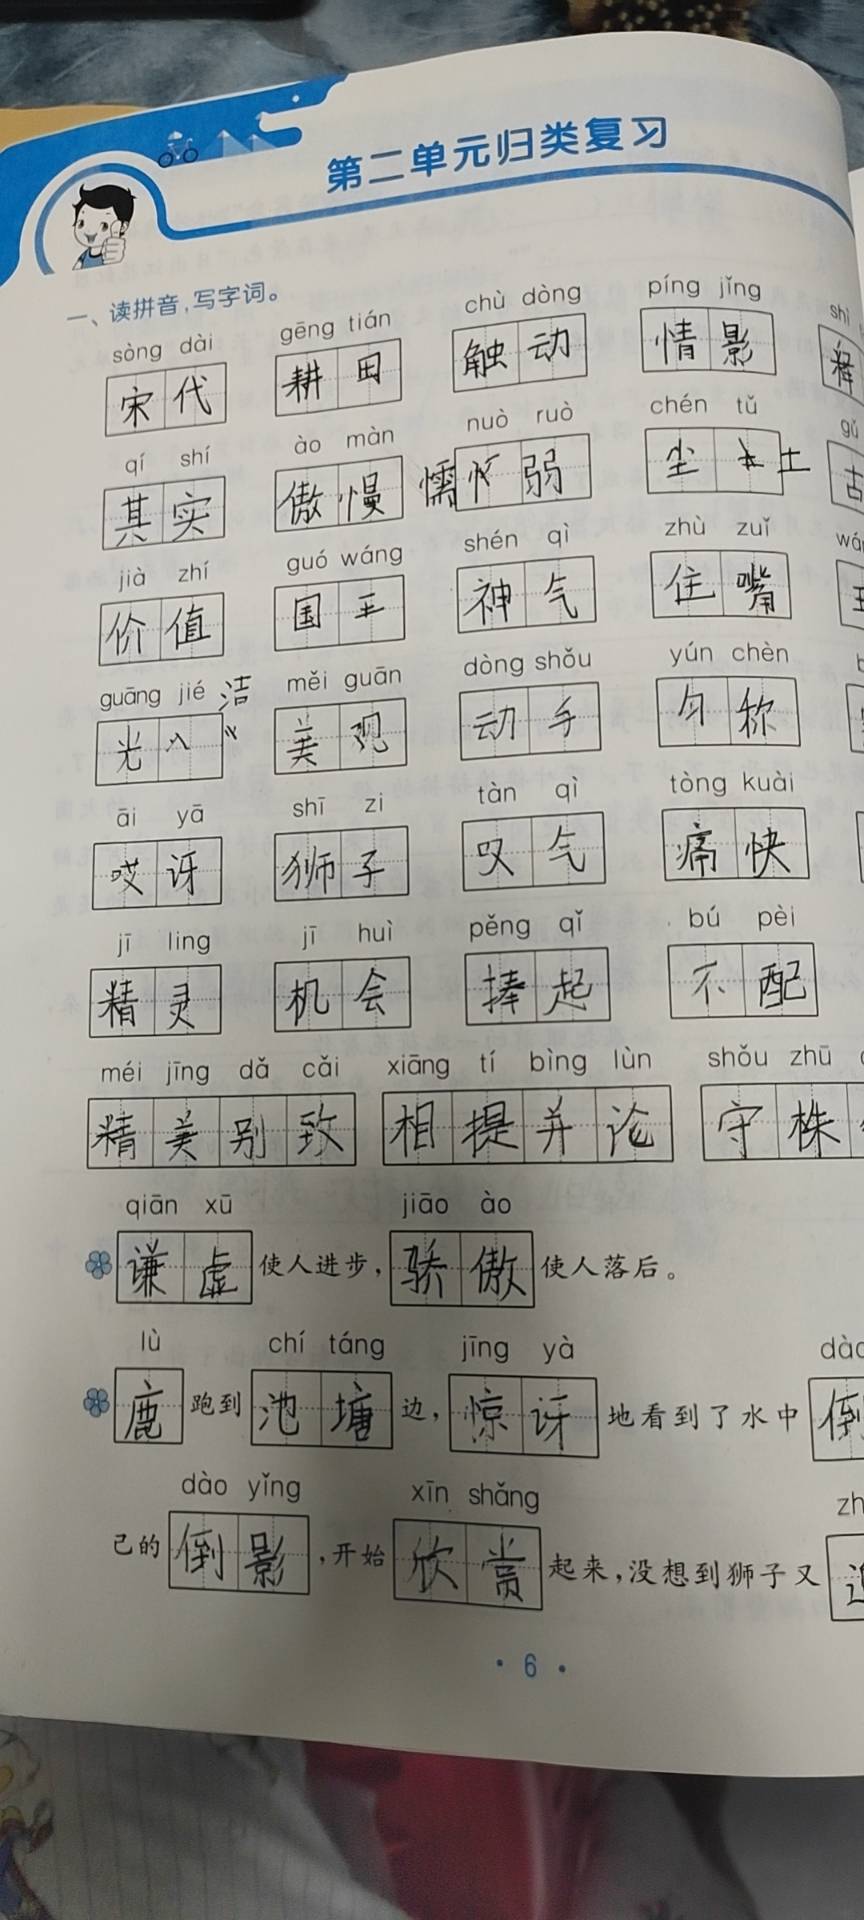 第二单元归类复习
一、读拼音,写字词。
sòng dài gēng tián chù dòng píng jǐng shì
宋代 耕田 触动 情影 释
qí shí ào màn nuò ruò chén tǔ gǔ
其实 傲慢 懦 弱 尘土 古
jià zhí guó wáng shén qì zhù zuǐ wá
价值 国王 神气 住嘴 王
guāng jié 洁 měi guān dòng shǒu yún chèn
光 美观 动手 匀称
āi yā shī zi tàn qì tòng kuài
哎呀 狮子 叹气 痛快
jī ling jī huì pěng qǐ bú pèi
精灵 机会 捧起 不配
méi jīng dǎ cǎi xiāng tí bìng lùn shǒu zhū
精美别致 相提并论 守株
qiān xū jiāo ào
谦虚使人进步,骄傲使人落后。
lù chí táng jīng yà dào
鹿跑到池塘边,惊讶地看到了水中倒
dào yǐng xīn shǎng zh
己的倒影,开始欣赏起来,没想到狮子又
·6·